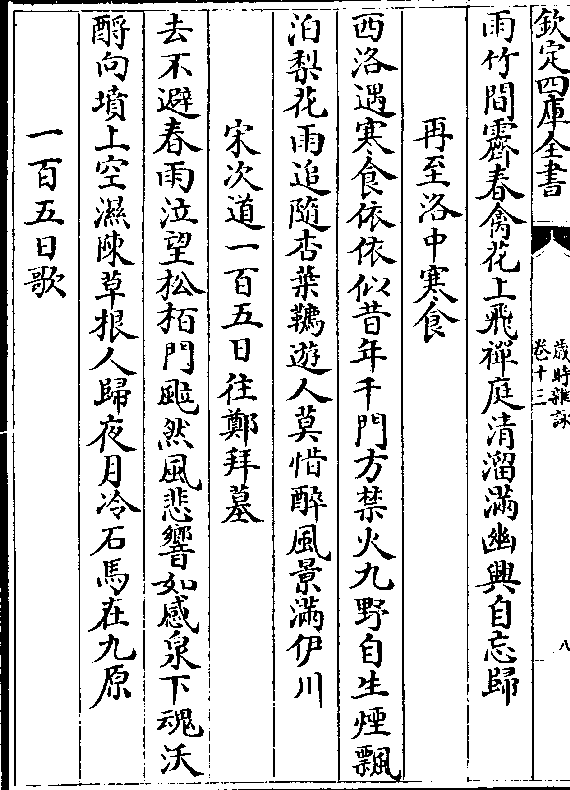 欽定四庫全書
歲時雜詠
卷十三
八
雨竹間霽春禽花上飛禪庭清溜滿幽興自忘歸
再至洛中寒食
西洛遇寒食依依似昔年千門方禁火九野自生煙飄
泊梨花雨追隨杏葉韉遊人莫惜醉風景滿伊川
宋次道一百五日往鄭拜墓
去不避春雨泣望松栢門颭然風悲響如感泉下魂沃
酹向墳上空濕陳草根人歸夜月冷石馬在九原
一百五日歌